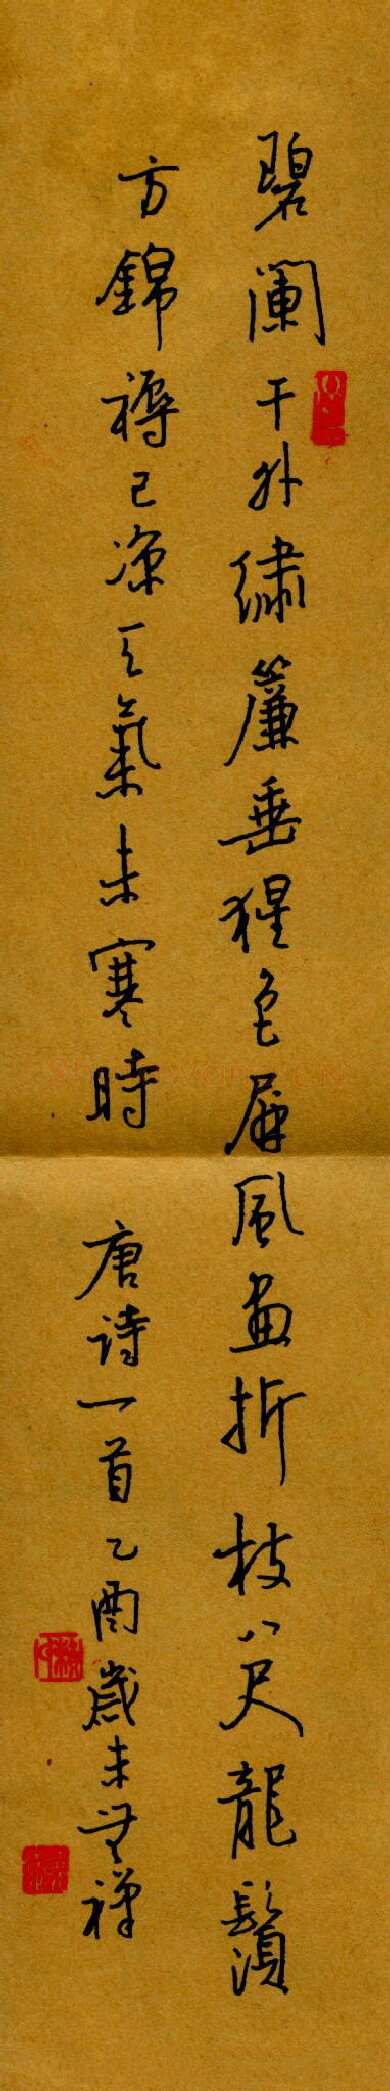 碧阑干外绣簾垂猩色屏風畫折枝八尺龍鬚
方錦褥已凉天氣未寒時 唐诗一首乙酉歲末 禅